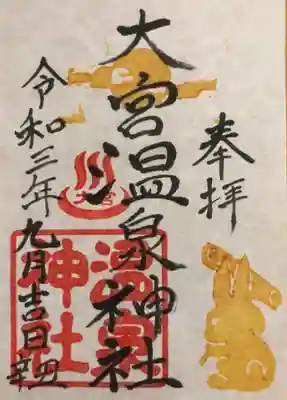 奉拝
大宮温泉神社
令和三年九月吉日
辛丑
大宮
温泉
神社